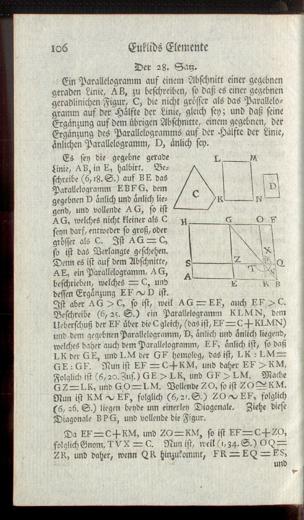 106 Euklids Elemente
Der 28. Satz.
Ein Parallelogramm auf einem Abschnitt einer gegebnen
geraden Linie, AB, zu beschreiben, so daß es einer gegebnen
geradlinichen Figur, C, die nicht grösser als das Parallelo-
gramm auf der Hälfte der Linie, gleich sey; und daß seine
Ergänzung auf dem übrigen Abschnitte, einem gegebnen, der
Ergänzung des Parallelogramms auf der Hälfte der Linie,
änlichen Parallelogramm, D, änlich sey.
Es sey die gegebne gerade
Linie, AB, in E, halbirt. Be-
schreibe (6,18. S.) auf BE das
Parallelogramm EBFG, dem
gegebnen D änlich und änlich lie-
gend, und vollende AG, so ist
AG, welches nicht kleiner als C
seyn darf, entweder so groß, oder
grösser als C. Ist AG = C,
so ist das Verlangte geschehen.
Denn es ist auf dem Abschnitte,
AE, ein Parallelogramm, AG,
beschrieben, welches = C, und
dessen Ergänzung EF ∾ D ist.
Ist aber AG > C, so ist, weil AG = EF, auch EF > C.
Beschreibe (6,25. S.) ein Parallelogramm KLMN, dem
Ueberschuß der EF über die C gleich, (das ist, EF = C + KLMN)
und dem gegebnen Parallelogramm, D, änlich und änlich liegend,
welches daher auch dem Parallelogramm, EF, änlich ist, so daß
LK der GE, und LM der GF homolog, das ist, LK : LM =
GE : GF. Nun ist EF = C + KM, und daher EF > KM,
Folglich ist (6,20. Zus.) GE > LK, und GF > LM. Mache
GZ = LK, und GO = LM. Vollende ZO, so ist ZO ≅ KM.
Nun ist KM ∾ EF, folglich (6,21. S.) ZO ∾ EF, folglich
(6,26. S.) liegen beyde um einerley Diagonale. Ziehe diese
Diagonale BPG, und vollende die Figur.
Da EF = C + KM, und ZO = KM, so ist EF = C + ZO,
folglich Gnom. TVX = C. Nun ist, weil (1,34. S.) OQ =
ZR, und daher, wenn QR hinzukommt, FR = EQ = ES,
und
L M
C
K N
D
H G O F
X
Z
T
S Q
A E R B